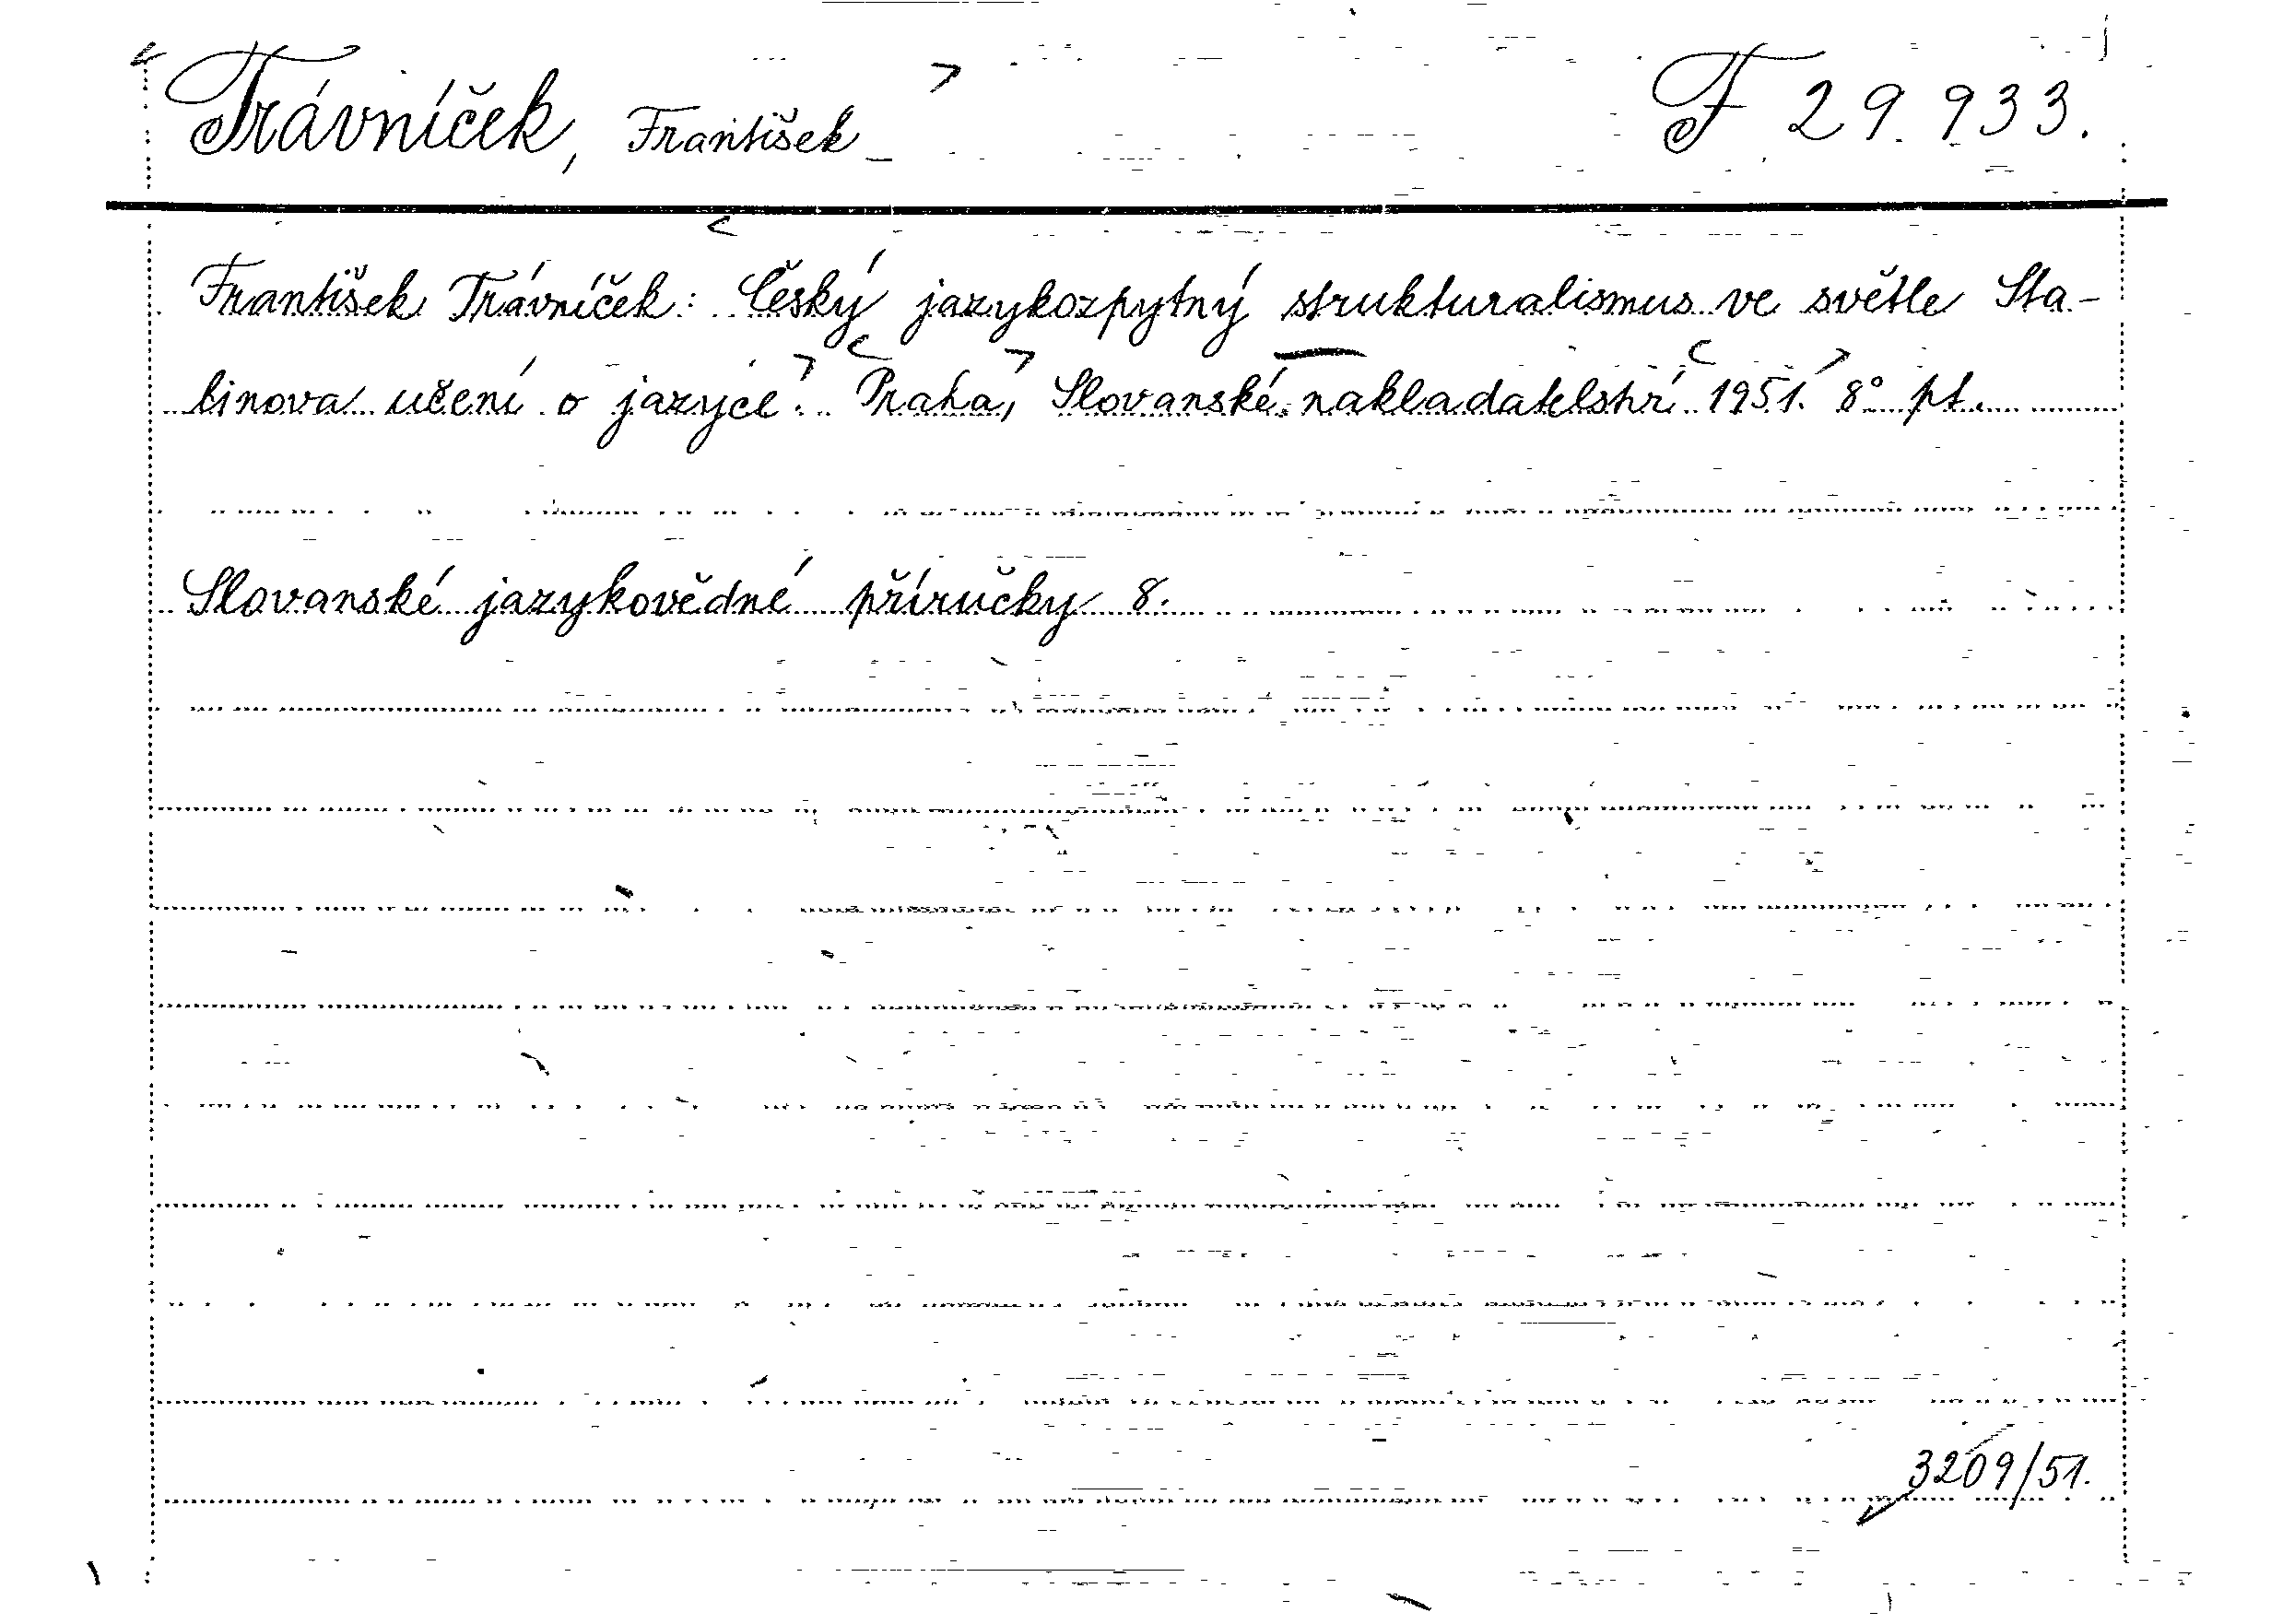 Trávníček, František
F 29.933.
František Trávníček: Český jazykozpytný strukturalismus ve světle Sta-
linova učení o jazyce. Praha, Slovanské nakladatelství 1951. 8° pt.
Slovanské jazykovědné příručky 8.
3209/51.